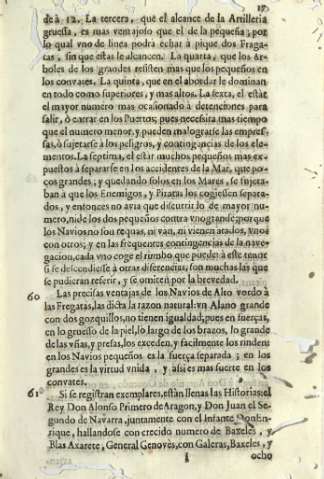 17
de à 12. La tercera, que el alcance de la Artilleria
gruessa, es mas ventajoso que el de la pequeña; por
lo qual vno de linea podrà echar à pique dos Fraga-
tas, sin que estas le alcancen. La quarta, que los ar-
boles de los grandes resisten mas que los pequeños en
los convates. La quinta, que en el abordar le dominan
en todo como superiores, y mas altos. La sexta, el estàr
el mayor numero mas ocasionado à detenciones para
salir, ò entrar en los Puertos, pues necesita mas tiempo
que el numero menor, y pueden malograrse las empres-
sas, ò sujetarse à los peligros, y contingencias de los ele-
mentos. La septima, el estàr muchos pequeños mas ex-
puestos à separarse en los accidentes de la Mar, que po-
cos grandes; y quedando solos en los Mares, se sujeta-
ban à que los Enemigos, y Piratas los cogiessen separa-
dos, y entonces no avia que discurrir lo de mayor nu-
mero, ni de los dos pequeños contra vno grande; porque
los Navios no son requas, ni vàn, ni vienen atados, vnos
con otros; y en las frequentes contingencias de la nave-
gacion, cada vno coge el rumbo que puede: à este tenor
si se descendiesse à otras diferencias, son muchas las que
se pudieran referir, y se omiten por la brevedad.
60 Las precisas ventajas de los Navios de Alto vordo à
las Fregatas, las dicta la razon natural: vn Alano grande
con dos gozquillos, no tienen igualdad; pues en fuerças,
en lo gruesso de la piel, lo largo de los brazos, lo grande
de las vñas, y presas, los exceden, y facilmente los rinden:
en los Navios pequeños es la fuerça separada; en los
grandes es la virtud vnida, y assi es mas fuerte en los
convates.
61 Si se registran exemplares, estàn llenas las Historias: el
Rey Don Alonso Primero de Aragon, y Don Juan el Se-
gundo de Navarra, juntamente con el Infante Don En-
rique, hallandose con crecido numero de Baxeles, y
Blas Axarete, General Genovès, con Galeras, Baxeles, y
ocho